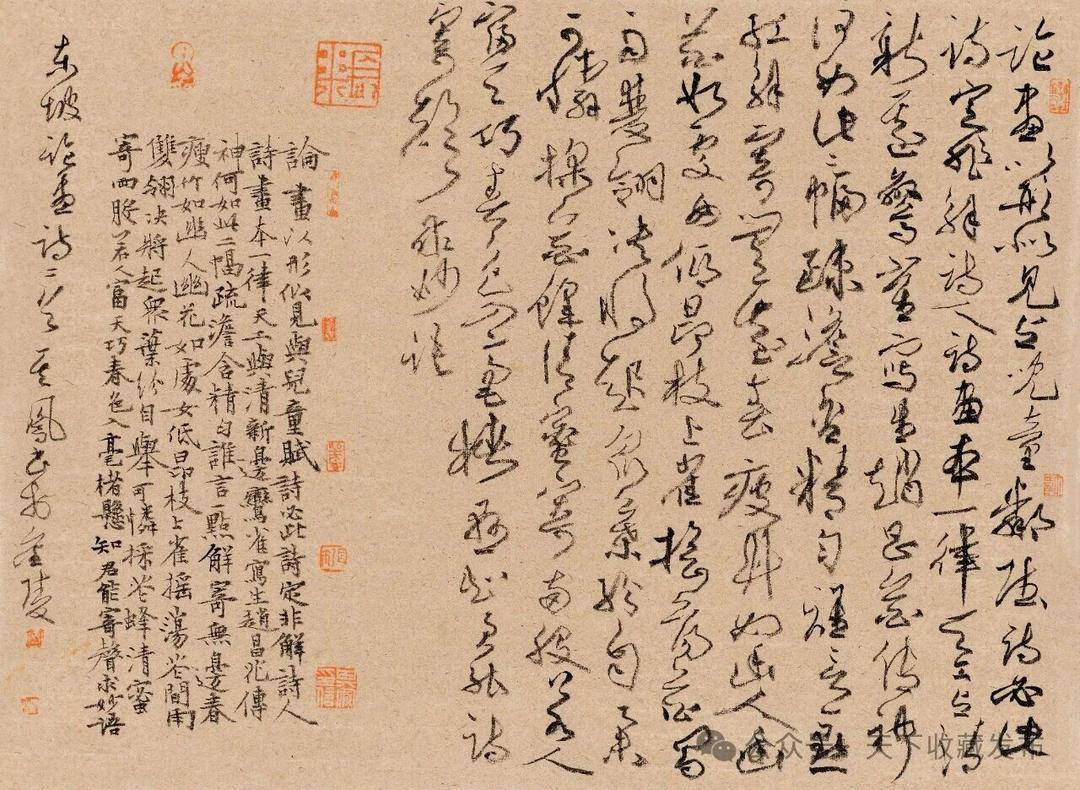 論畫以形似見與兒童鄰賦詩必此
詩定非解詩人詩畫本一律天工與清
新邊鸞雀寫生趙昌花傳神
何如此二幅疏澹含精勻誰言一點
紅解寄無邊春瘦竹如幽人幽
花如處女低昂枝上雀搖蕩花間
雨雙翎決將起眾葉紛自舉
可憐採花蜂清蜜寄兩股若人
富天巧春色入毫楮懸知君能詩
寄聲求妙語
論畫以形似見與兒童賦詩必此詩定非解詩人
詩畫本一律天工與清新邊鸞雀寫生趙昌花傳
神何如此二幅疏澹含精勻誰言一點解寄無邊春
瘦竹如幽人幽花如處女低昂枝上雀搖蕩花間雨
雙翎決將起眾葉紛自舉可憐採花蜂清蜜
寄兩股若人富天巧春色入毫楮懸知君能寄聲求妙語
東坡論畫詩二首 鳳書於金陵
公众号 天下收藏发布